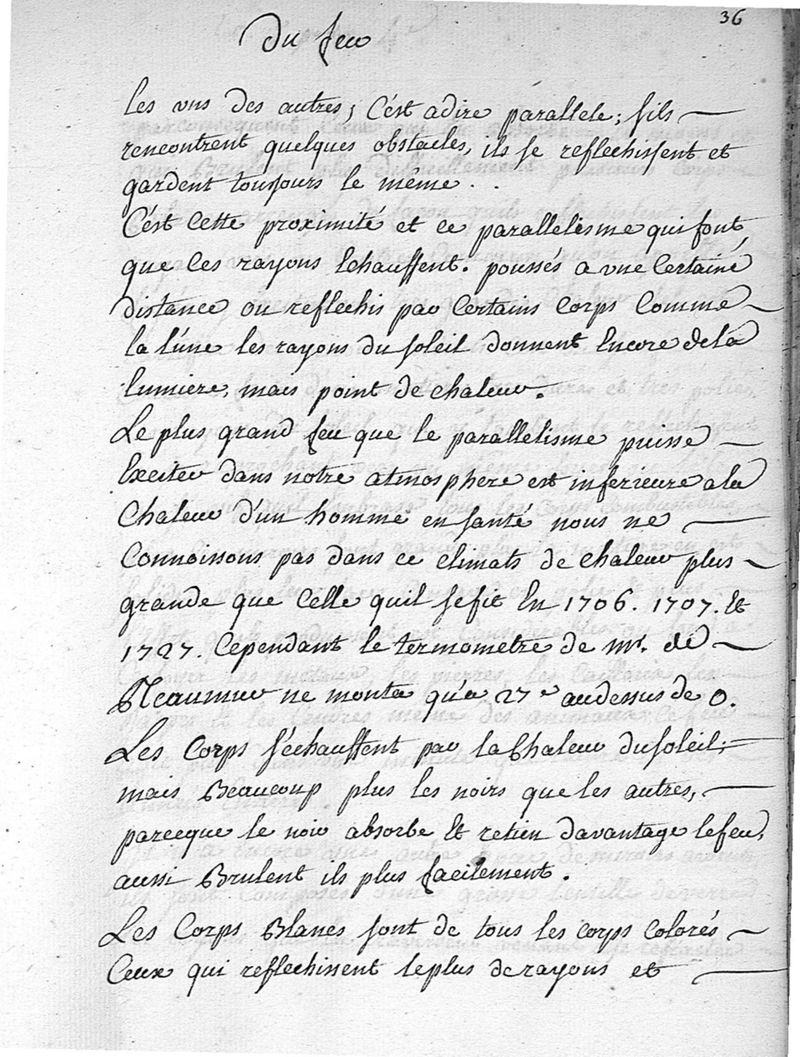 36
Du feu
les uns des autres, C'est adire parallele; sils
rencontrent quelques obstacles, ils se reflechissent et
gardent toujours le même . .
C'est Cette proximité et ce parallelisme qui font
que Ces rayons Echauffent. poussés a une Certaine
distance ou reflechis par Certains Corps Comme
la lune les rayons du soleil donnent Encore de la
lumiere, mais point de chaleur.
Le plus grand feu que le parallelisme puisse
Exciter dans notre atmosphere est inferieure a la
Chaleur d'un homme en santé nous ne
Connoissons pas dans ce climats de chaleur plus
grande que Celle quil se fit En 1706. 1707. Et
1727. Cependant le termometre de mr. de
Reaumur ne monta qu'a 27 e au dessus de 0.
Les Corps s'échauffent par la Chaleur du soleil;
mais Beaucoup plus les noirs que les autres,
parceque le noir absorbe Et retien davantage le feu,
aussi Brulent ils plus facilement.
Les Corps Blancs sont de tous les corps colorés
Ceux qui reflechissent le plus de rayons et